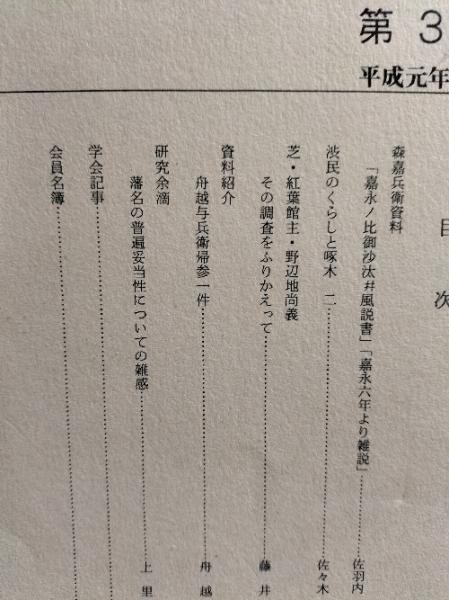 第3
平成元年
目次
森嘉兵衛資料
「嘉永ノ比御沙汰幷風説書」「嘉永六年より雑説」……佐羽内
渋民のくらしと啄木 二……佐々木
芝・紅葉館主・野辺地尚義
その調査をふりかえって……藤井
資料紹介
舟越与兵衛帰参一件……舟越
研究余滴
藩名の普遍妥当性についての雑感……上里
学会記事……
会員名簿……